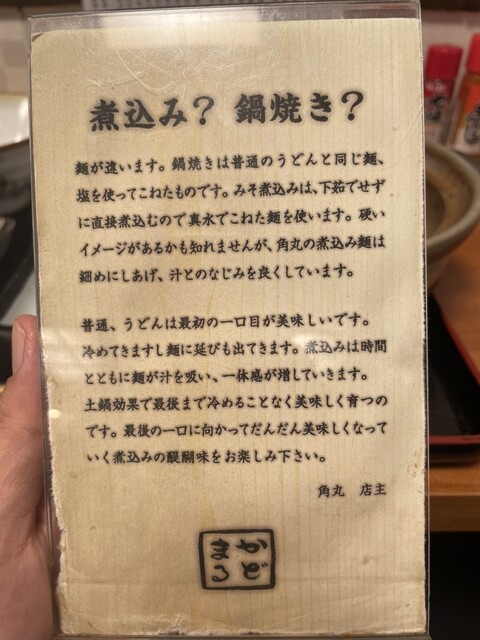 煮込み？ 鍋焼き？
麺が違います。鍋焼きは普通のうどんと同じ麺、
塩を使ってこねたものです。みそ煮込みは、下茹でせず
に直接煮込むので真水でこねた麺を使います。硬い
イメージがあるかも知れませんが、角丸の煮込み麺は
細めにしあげ、汁とのなじみを良くしています。
普通、うどんは最初の一口目が美味しいです。
冷めてきますし麺に延びも出てきます。煮込みは時間
とともに麺が汁を吸い、一体感が増していきます。
土鍋効果で最後まで冷めることなく美味しく育つの
です。最後の一口に向かってだんだん美味しくなって
いく煮込みの醍醐味をお楽しみ下さい。
角丸 店主
かど
まる